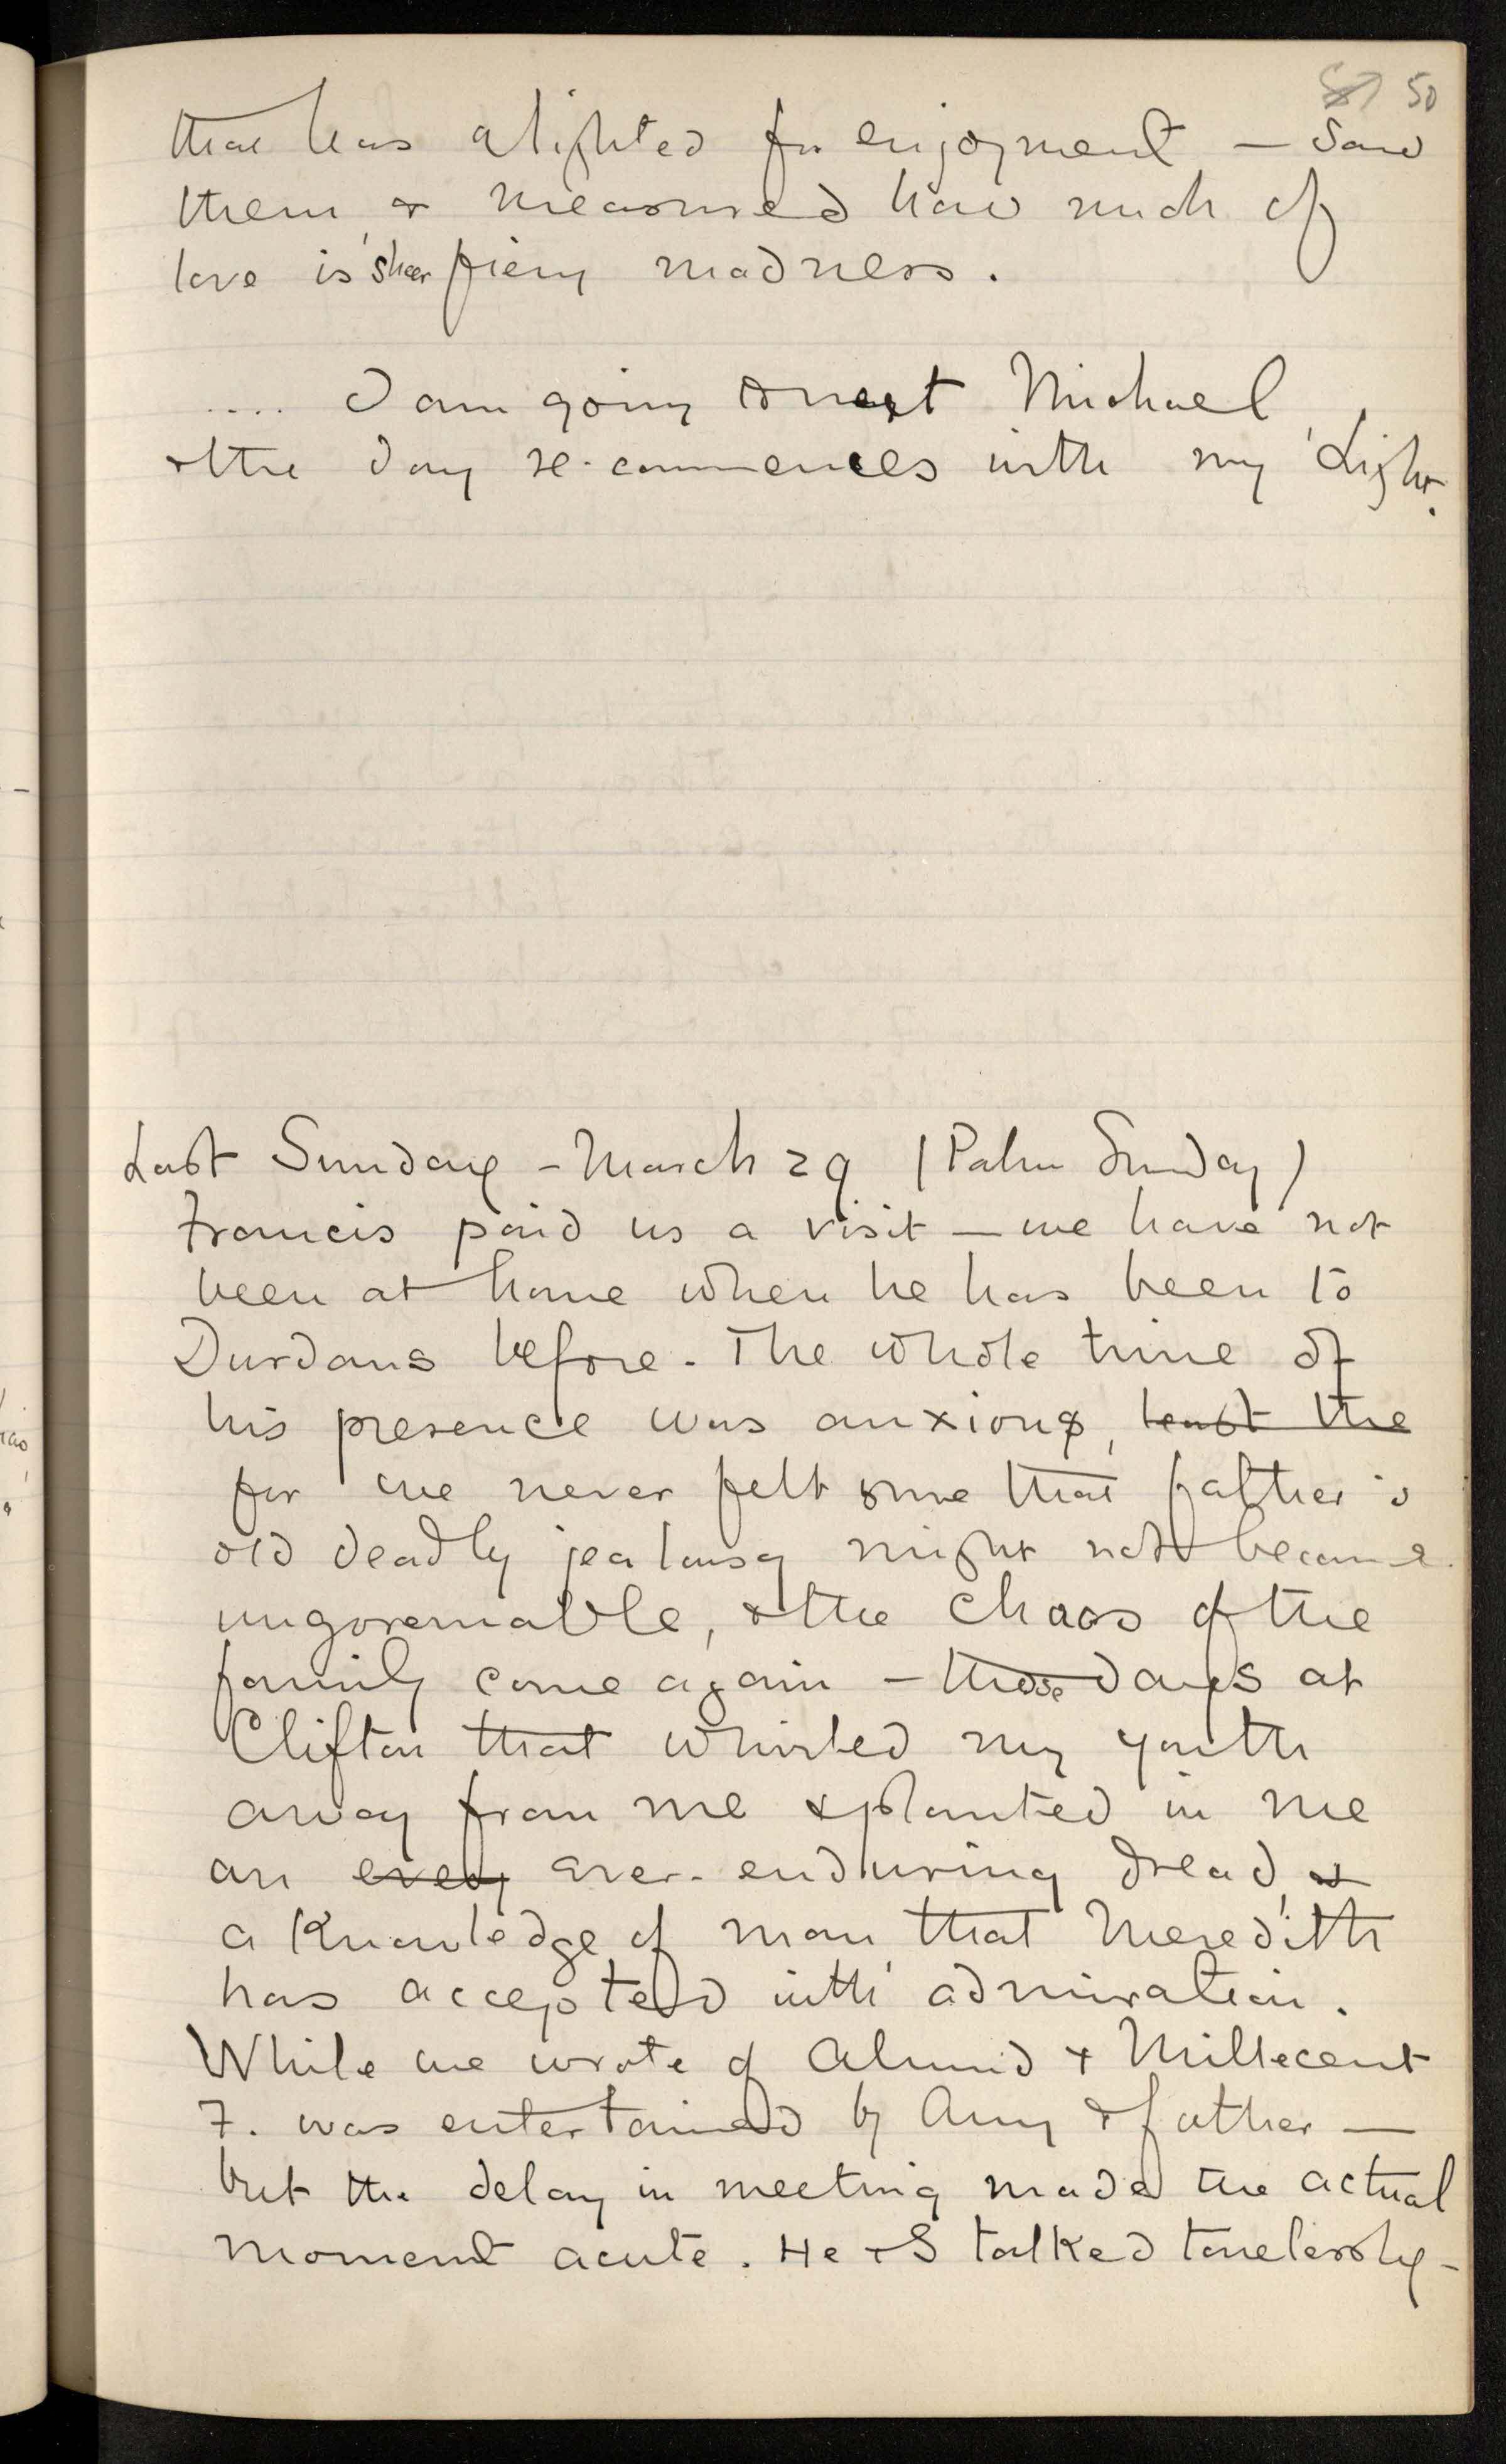 ~~57~~ 50
that has alighted for enjoyment – saw
them, & measured how much of
love is sheer fiery madness.
.... I am going to meet Michael,
& the day re-commences with my Light.
Last Sunday – March 29 (Palm Sunday)
Francis paid us a visit — we have not
been at home when he has been to
Durdans before. The whole time of
his presence was anxious, ~~least the~~
for we never felt sure that father's
old deadly jealousy might not become
ungovernable, & the chaos of the
family come again – those days at
Clifton that whirled my youth
away from me & planted in me
an ~~every~~ ever-enduring dread, ~~&~~
a knowledge of man that Meredith
has accepted with admiration.
While we wrote of Almund & Millecent
F. was entertained by Amy & father —
but the delay in meeting made the actual
moment acute. He & S talked tonelessly –